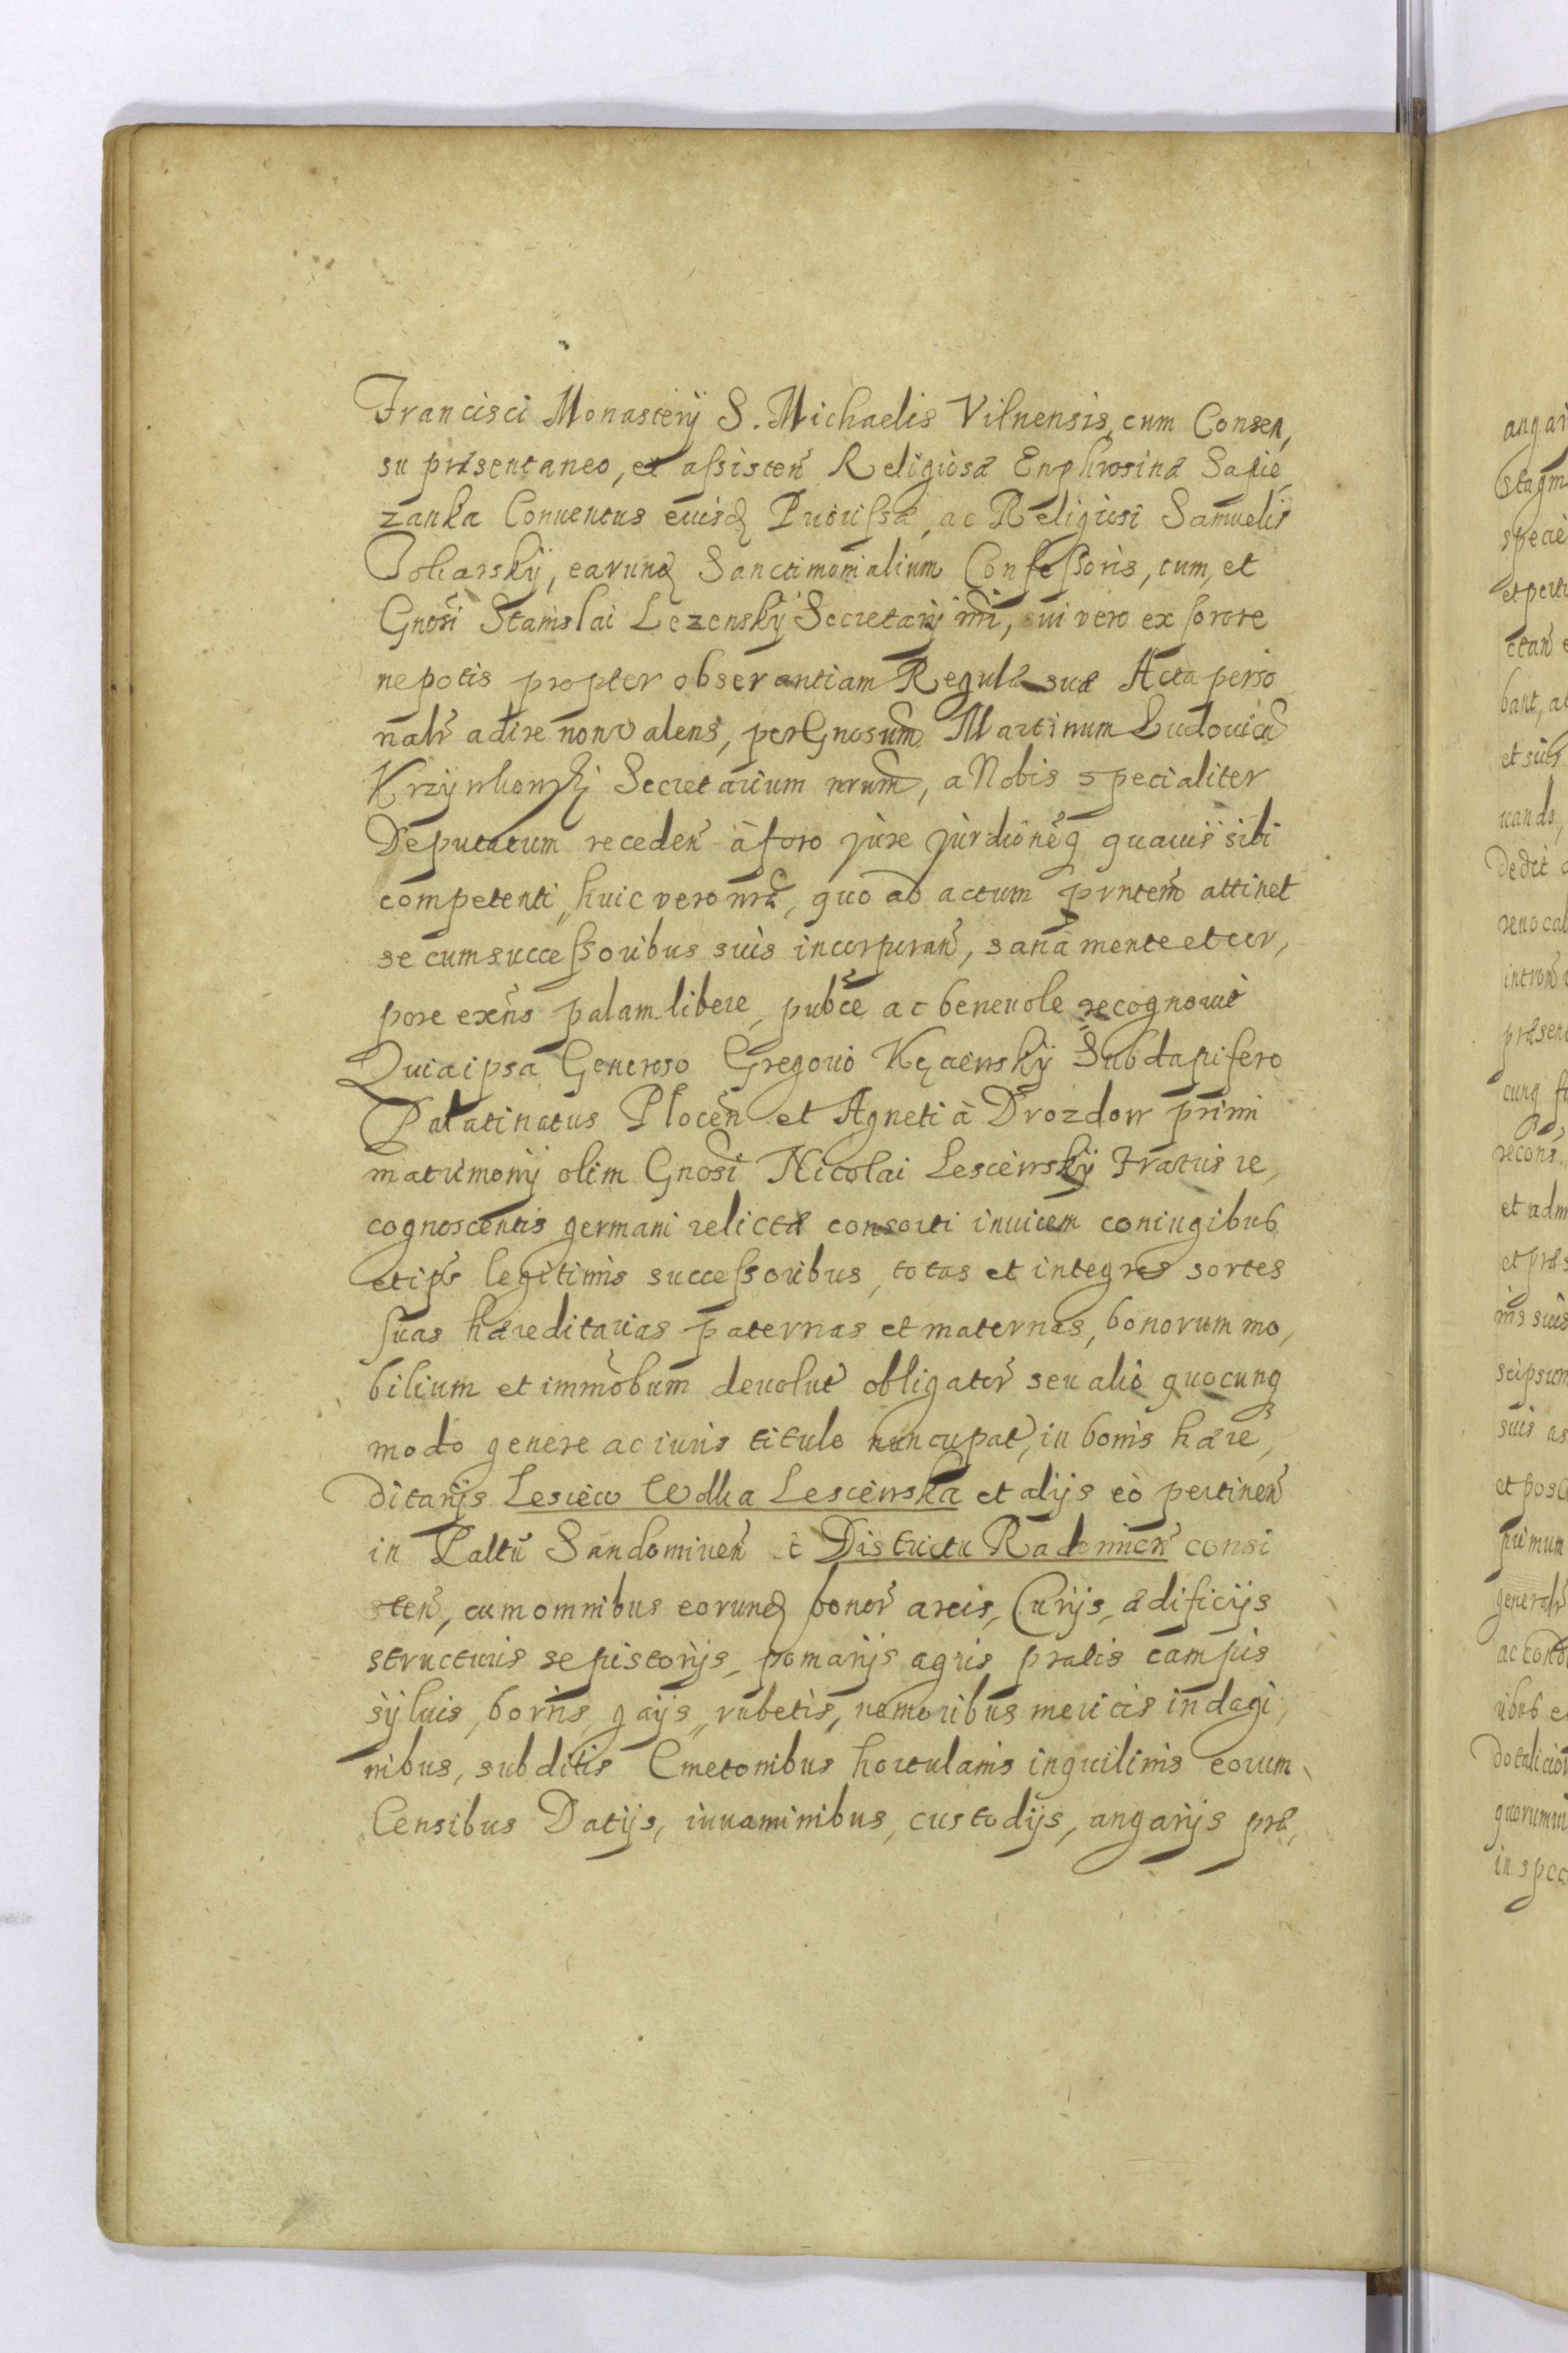 Francisci Monasterij S. Michaelis Vilnensis, cum Consen,
su præsentaneo, et assisten Religiosæ Euphrosinæ Sapie,
zanka Conuentus eiusd Priorissæ, ac Religiosi Samuelis
earund Sanctimonialium Confessoris, tum, et
Gnosi Stanislai Lezenskij Secretarij nri, sui vero ex sorore
nepotis propter observantiam Regulæ suæ Acta perso
nalr adire non valens, per Gnosum Martinum Ludouicu
Secretarium nrum, a Nobis specialiter
Deputatum receden à foro jure jurdioneq quauis sibi
competenti, huic vero nro, quo ad actum pntem attinet
se cum successoribus suis incorporan, sana mente et cor,
pore exns palam libere, pubce ac beneuole recognouit
Quia ipsa Generoso Gregorio Subdapifero
Palatinatus Plocen et Agneti à Drozdow primi
matrimonij olim Gnosi Nicolai Lesciewskij Fratris re,
cognoscentis germani relictæ consorti inuicem coniugibus
et ipr legitimis successoribus, totas et integras sortes
suas hæreditarias paternas et maternas, bonorum mo,
bilium et immobum deuolut obligator seu alio quocunq
modo genere ac iuris titulo nuncupat, in bonis hære,
ditarijs Lesciew Wolka Lesciewska et alijs eò pertinen
in Paltu Sandomirien et Districtu Radomien consi
sten, cum omnibus eorund bonor areis, Curijs, ædificijs
structuris sepistorijs, pomarijs agris pratis campis
syluis, borris, gaijs, rubetis, nemoribus mericis indagi,
nibus, subditis Cmetonibus hortulanis inquilinis eorum
Censibus Datijs, iuuaminibus, custodijs, angarijs præ,